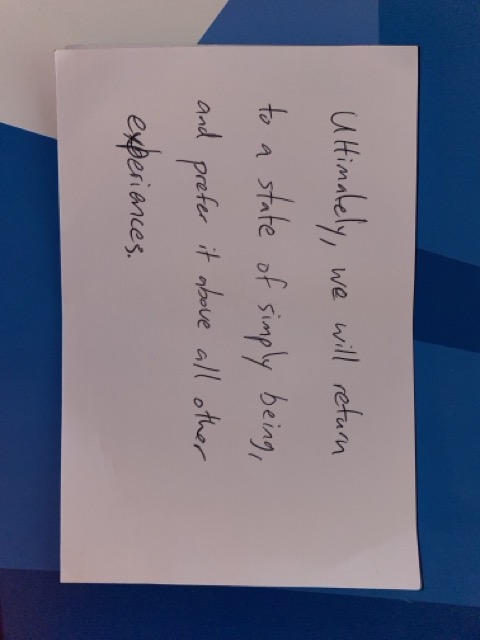 Ultimately, we will return
to a state of simply being,
and prefer it above all other
experiances.